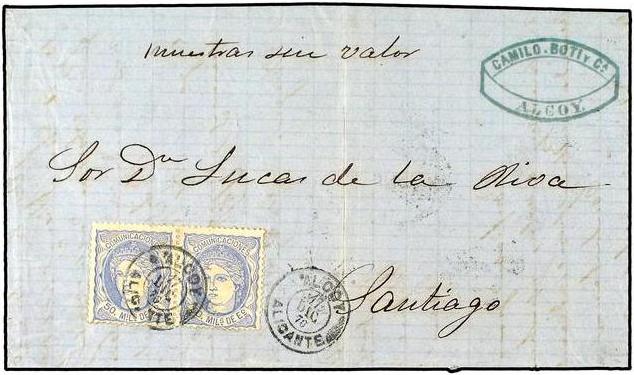 muestras sin valor
CAMILO·BOTI Y Cª
ALCOY.
Sor Dn Lucas de la Riva
Santiago
COMUNICACIONES
50. MILS DE Eº
COMUNICACIONES
50. MILS DE Eº
ALCOY
ALICANTE
ALCOY
DIC
70
ALICANTE